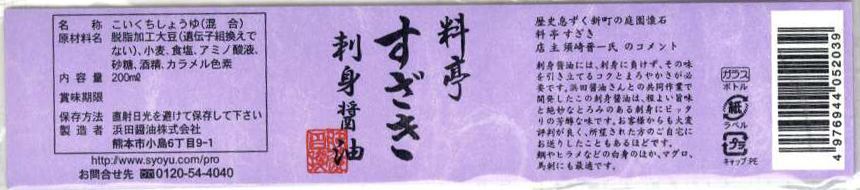 名称 こいくちしょうゆ(混合)
原材料名 脱脂加工大豆(遺伝子組換え
でない)、小麦、食塩、アミノ酸液、
砂糖、酒精、カラメル色素
内容量 200mℓ
賞味期限
保存方法 直射日光を避けて保存して下さい
製造者 浜田醤油株式会社
熊本市小島6丁目9-1
http://www.syoyu.com/pro
お問合せ先 0120-54-4040
料亭
すざき
刺身醤油
歴史息ずく新町の庭園懐石
料亭すざき
店主 須崎晋一氏 のコメント
刺身醤油には、刺身に負けず、その味
を引き立てるコクとまろやかさが必
要です。浜田醤油さんとの共同作業で
開発したこの刺身醤油は、程よい旨味
と絶妙なとろみのある刺身にピッタ
リの芳醇な味です。お客様からも大変
評判が良く、所望された方のご自宅に
お送りしたこともあるほどです。
鯛やヒラメなどの白身のほか、マグロ、
馬刺にも最適です。
ガラス
ボトル
紙
ラベル
プラ
キャップ:PE
4976944052039